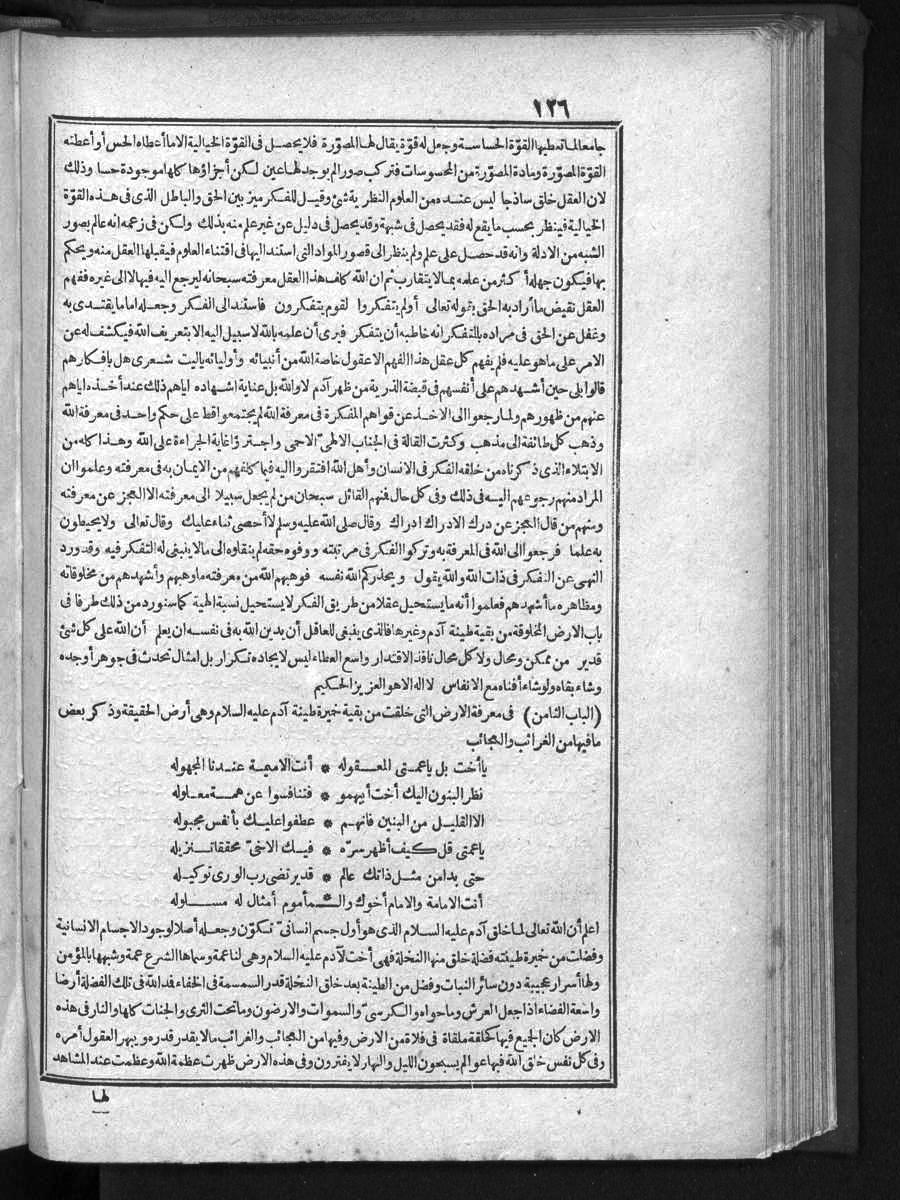 ١٢٦
جامعا لما تعطيها القوّة الحساسة وجعل له قوّة يقال لها المصوّرة فلا يحصل فى القوّة الخيالية الا ما أعطاه الحس أو أعطته
القوّة المصوّرة ومادة المصوّرة من المحسوسات فتركب صورا لم يوجد لها عين لكن أجزاؤها كلها موجودة حسا وذلك
لان العقل خلق ساذجا ليس عنده من العلوم النظرية شئ وقيل للفكر ميز بين الحق والباطل الذى فى هذه القوّة
الخيالية فينظر بحسب ما يقع له فقد يحصل فى شبهة وقد يحصل فى دليل عن غير علم منه بذلك ولكن فى زعمه انه عالم بصور
الشبه من الادلة وانه قد حصل على علم ولم ينظر الى قصور المواد التى استند اليها فى اقتناء العلوم فيقبلها العقل منه ويحكم
بها فيكون جهله أكثر من علمه بما لا يتقارب ثم ان الله كلف هذا العقل معرفته سبحانه ليرجع اليه فيها لا الى غيره ففهم
العقل نقيض ما أراد به الحق بقوله تعالى أولم يتفكروا لقوم يتفكرون فاستند الى الفكر وجعله اماما يقتدى به
وغفل عن الحق فى مراده بالتفكر انه خاطبه أن يتفكر فيرى أن علمه بالله لا سبيل اليه الا بتعريف الله فيكشف له عن
الامر على ما هو عليه فلم يفهم كل عقل هذا الفهم الا عقول خاصة الله من أنبيائه وأوليائه ياليت شعرى هل بافكارهم
قالوا بلى حين أشهدهم على أنفسهم فى قبضة الذرية من ظهر آدم لا والله بل عناية اشهاده اياهم ذلك عند أخذه اياهم
عنهم من ظهورهم ولما رجعوا الى الاخذ عن قواهم المفكرة فى معرفة الله لم يجتمعوا قط على حكم واحد فى معرفة الله
وذهب كل طائفة الى مذهب وكثرت القالة فى الجناب الالهىّ الاحمى واجترؤا غاية الجراءة على الله وهذا كله من
الابتلاء الذى ذكرناه من خلقه الفكر فى الانسان وأهل الله افتقروا اليه فيما كلفهم من الايمان به فى معرفته وعلموا ان
المراد منهم رجوعهم اليه فى ذلك وفى كل حال فنهم القائل سبحان من لم يجعل سبيلا الى معرفته الا العجز عن معرفته
ومنهم من قال العجز عن درك الادراك ادراك وقال صلى الله عليه وسلم لا أحصى ثناء عليك وقال تعالى ولا يحيطون
به علما فرجعوا الى الله فى المعرفة به وتركوا الفكر فى مرتبته ووفوه حقه لم ينقلوه الى ما لا ينبغى له التفكر فيه وقد ورد
النهى عن التفكر فى ذات الله والله يقول ويحذركم الله نفسه فوهبهم الله من معرفته ما وهبهم وأشهدهم من مخلوقاته
ومظاهره ما أشهدهم فعلموا أنه ما يستحيل عقلا من طريق الفكر لا يستحيل نسبة الهية كما سنورد من ذلك طرفا فى
باب الارض المخلوقة من بقية طينة آدم وغيرها فالذى ينبغى للعاقل أن يدين الله به فى نفسه ان يعلم أن الله على كل شئ
قدير من ممكن ومحال ولا كل محال نافذ الاقتدار واسع العطاء ليس لايجاده تكرار بل امثال تحدث فى جوهر أوجده
وشاء بقاه ولو شاء أفناه مع الانفاس لا اله الا هو العزيز الحكيم
(الباب الثامن) فى معرفة الارض التى خلقت من بقية خميرة طينة آدم عليه السلام وهى أرض الحقيقة وذكر بعض
ما فيها من الغرائب والعجائب
يا أخت بل يا عمتى المعقوله * أنت الاميمة عندنا المجهوله
نظر البنون اليك أخت أبيهمو * فتنافسوا عن همة معلوله
الا القليل من البنين فانهم * عطفوا عليك بأنفس مجبوله
يا عمتى قل كيف أظهر سرّه * فيك الاخىّ محققا تنزيله
حتى بدا من مثل ذاتك عالم * قدير تضى رب الورى توكيله
أنت الامامة والامام أخوك والـ * ـمأموم أمثال له مسلوله
اعلم أن الله تعالى لما خلق آدم عليه السلام الذى هو أول جسم انسانىّ تكوّن وجعله أصلا لوجود الاجسام الانسانية
وفضلت من خميرة طينته فضلة خلق منها النخلة فهى أخت لآدم عليه السلام وهى لنا عمة وسماها الشرع عمة وشبهها بالمؤمن
ولها أسرار عجيبة دون سائر النبات وفضل من الطينة بعد خلق النخلة قدر السمسمة فى الخفاء فمد الله فى تلك الفضلة أرضا
واسعة الفضاء اذا جعل العرش وما حواه والكرسىّ والسموات والارضون وما تحت الثرى والجنات كلها والنار فى هذه
الارض كان الجميع فيها كحلقة ملقاة فى فلاة من الارض وفيها من العجائب والغرائب ما لا يقدر قدره ويبهر العقول أمره
وفى كل نفس خلق الله فيها عوالم يسبحون الليل والنهار لا يفترون وفى هذه الارض ظهرت عظمة الله وعظمت عند المشاهد
لها